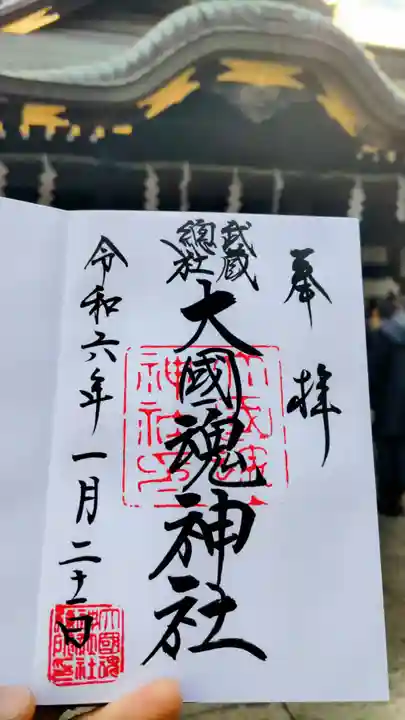 奉拝
武蔵
總社
大國魂神社
令和六年一月二十一日